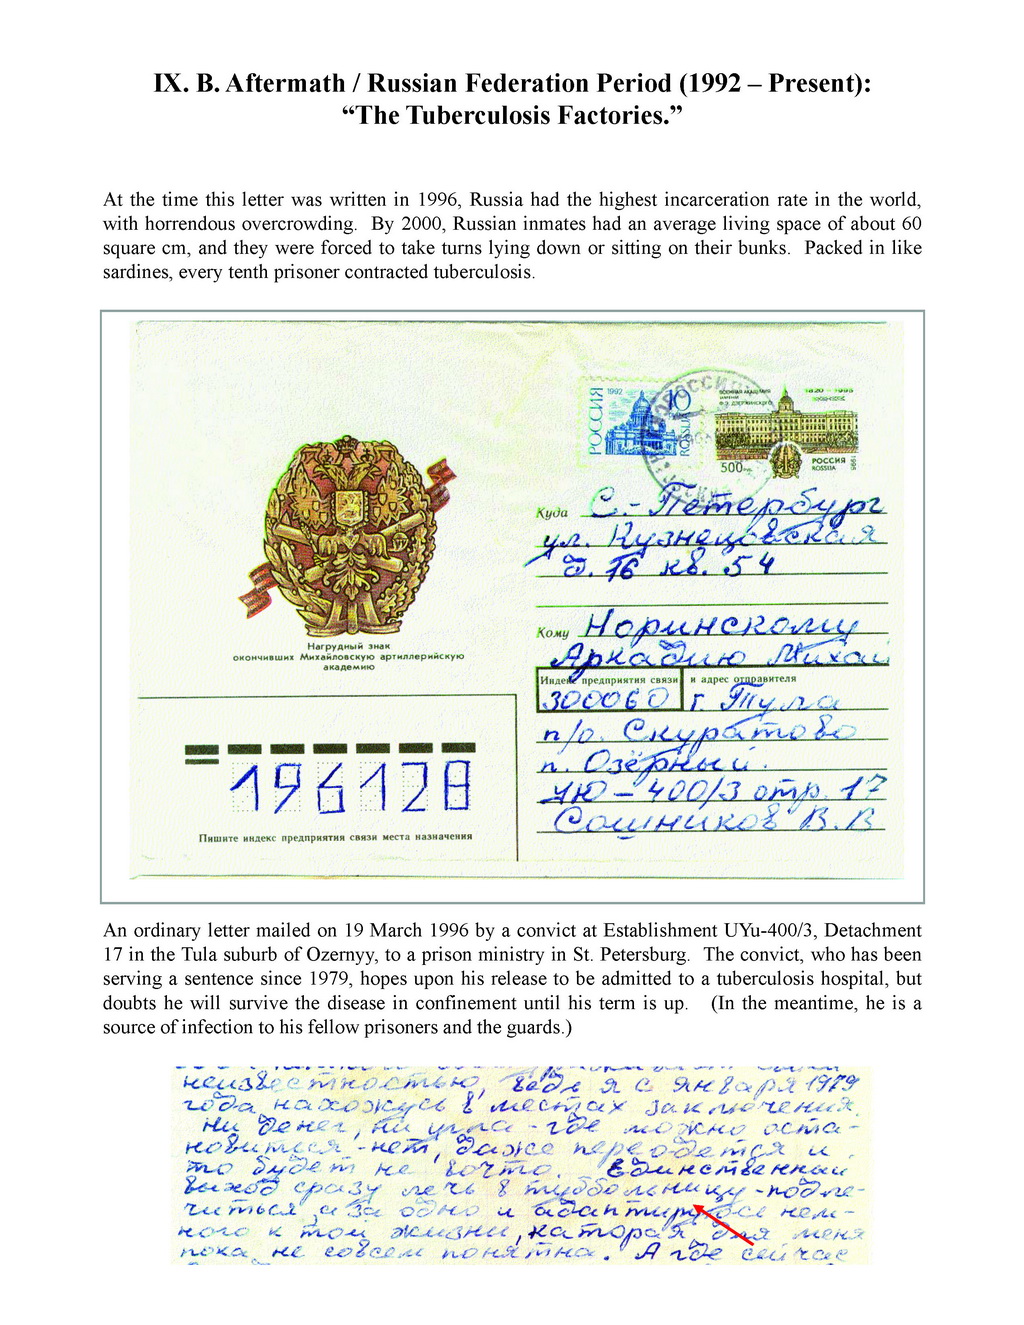 IX. B. Aftermath / Russian Federation Period (1992 – Present):
“The Tuberculosis Factories.”
At the time this letter was written in 1996, Russia had the highest incarceration rate in the world,
with horrendous overcrowding. By 2000, Russian inmates had an average living space of about 60
square cm, and they were forced to take turns lying down or sitting on their bunks. Packed in like
sardines, every tenth prisoner contracted tuberculosis.
РОССИЯ 1992 10 ROSSIJA
ВОЕННАЯ АКАДЕМИЯ
ИМЕНИ
Ф.Э. ДЗЕРЖИНСКОГО
1820 – 1995
500
РОССИЯ
ROSSIJA
1995
Куда С.-Петербург
ул. Кузнецовская
д. 16 кв. 54
Кому Норинскому
Аркадию Михай
Нагрудный знак
окончивших Михайловскую артиллерийскую
академию
Индекс предприятия связи и адрес отправителя
300060 г. Тула
п/о. Скуратово
п. Озёрный.
УЮ – 400/3 отр. 17
Сошников В. В
196128
Пишите индекс предприятия связи места назначения
An ordinary letter mailed on 19 March 1996 by a convict at Establishment UYu-400/3, Detachment
17 in the Tula suburb of Ozernyy, to a prison ministry in St. Petersburg. The convict, who has been
serving a sentence since 1979, hopes upon his release to be admitted to a tuberculosis hospital, but
doubts he will survive the disease in confinement until his term is up. (In the meantime, he is a
source of infection to his fellow prisoners and the guards.)
неизвестностью, ведь я с января 1979
года нахожусь в местах заключения.
Ни денег, ни угла - где можно оста-
новиться - нет, даже переодеться и
то будет не вочто. Единственный
выход сразу лечь в туббольницу - подле-
читься, а за одно и адаптируюсе нем-
ного к той жизни, каторая для меня
пока не совсем понятна. А где сейчас